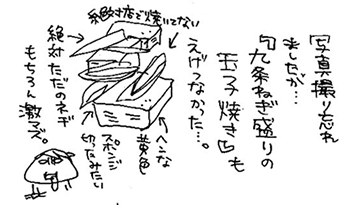 写真撮り忘れ
ましたが…
『九条ねぎ盛りの
玉子焼き』も
えげつなかった…。
絶対店で焼いてない
ヘンな
黄色
スポンジ
切ったみたい
絶対ただのネギ
もちろん激マズ。